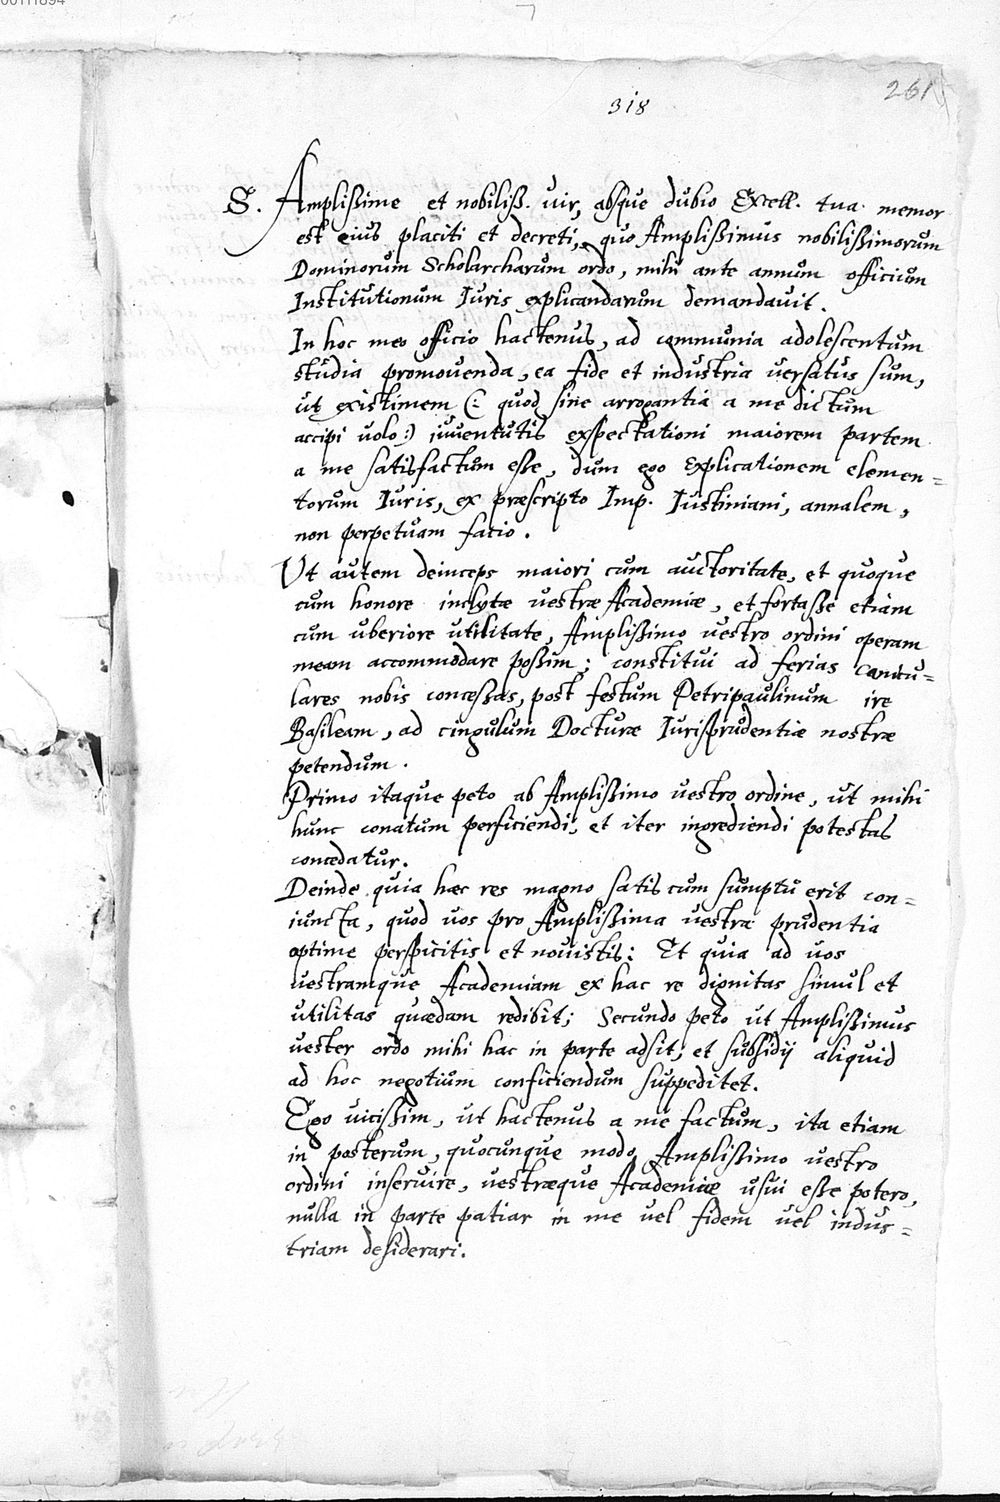 00111894
318
261
S. Amplißime et nobiliß. uir, absque dubio Excell. tua memor
est eius placiti et decreti, quo Amplißimus nobilißimorum
Dominorum Scholarcharum ordo, mihi ante annum officium
Institutionum Iuris explicandarum demandauit.
In hoc meo officio hactenus, ad communia adolescentum
studia promouenda, ea fide et industria uersatus sum,
ut existimem (: quod sine arrogantia a me dictum
accipi uolo:) iuuentutis exspectationi maiorem partem
a me satisfactum esse, dum ego explicationem elemen=
torum Iuris, ex præscripto Imp. Iustiniani, annalem,
non perpetuam facio.
Ut autem deinceps maiori cum auctoritate, et quoque
cum honore inclytæ uestræ Academiæ, et fortaße etiam
cum uberiore utilitate, Amplißimo uestro ordini operam
meam accommodare poßim; constitui ad ferias canicu=
lares nobis conceßas, post festum Petripaulinum ire
Basileam, ad cingulum Docturæ Iurisprudentiæ nostræ
petendum.
Primo itaque peto ab Amplißimo uestro ordine, ut mihi
hunc conatum perficiendi, et iter ingrediendi potestas
concedatur.
Deinde quia hæc res magno satis cum sumptu erit con=
iuncta, quod uos pro Amplißima uestra prudentia
optime perspicitis et nouistis: Et quia ad uos
uestramque Academiam ex hac re dignitas simul et
utilitas quædam redibit; Secundo peto ut Amplißimus
uester ordo mihi hac in parte adsit, et subsidij aliquid
ad hoc negotium conficiendum suppeditet.
Ego uicißim, ut hactenus a me factum, ita etiam
in posterum, quocunque modo Amplißimo uestro
ordini inseruire, uestræque Academiæ usui eße potero,
nulla in parte patiar in me uel fidem uel indus=
triam desiderari.